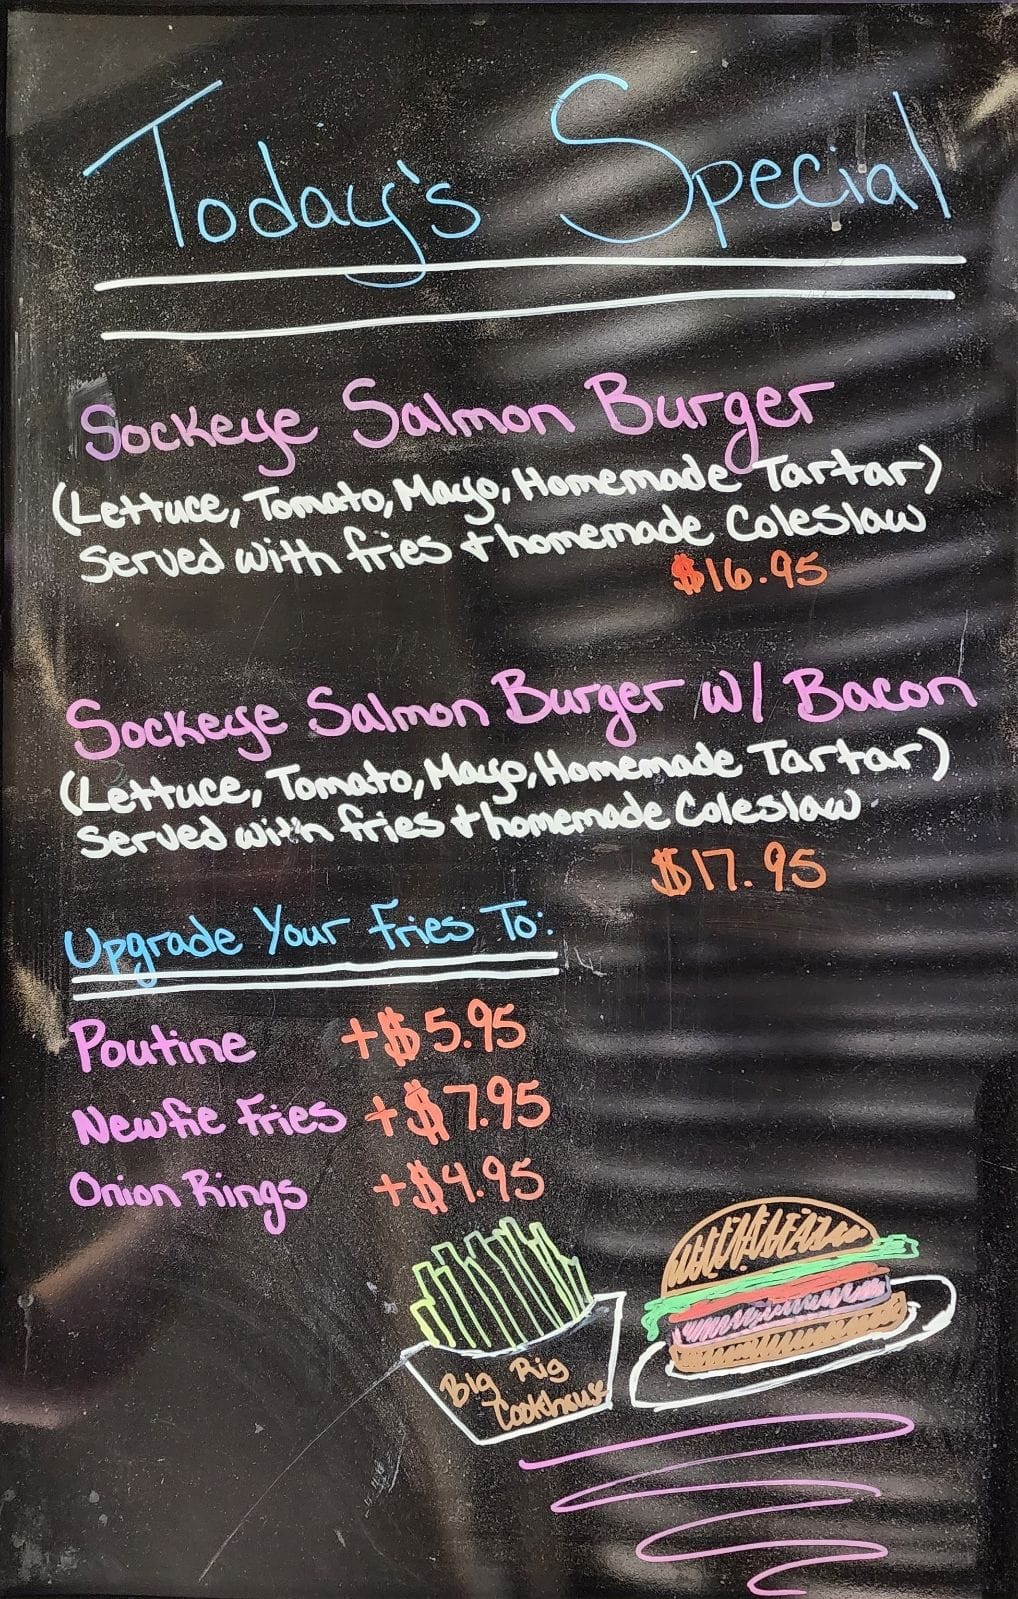 Today's Special
Sockeye Salmon Burger
(Lettuce, Tomato, Mayo, Homemade Tartar)
Served with fries + homemade Coleslaw
$16.95
Sockeye Salmon Burger w/ Bacon
(Lettuce, Tomato, Mayo, Homemade Tartar)
Served with fries + homemade Coleslaw
$17.95
Upgrade Your Fries To:
Poutine +$5.95
Newfie Fries +$7.95
Onion Rings +$4.95
Big Rig
Cookhouse